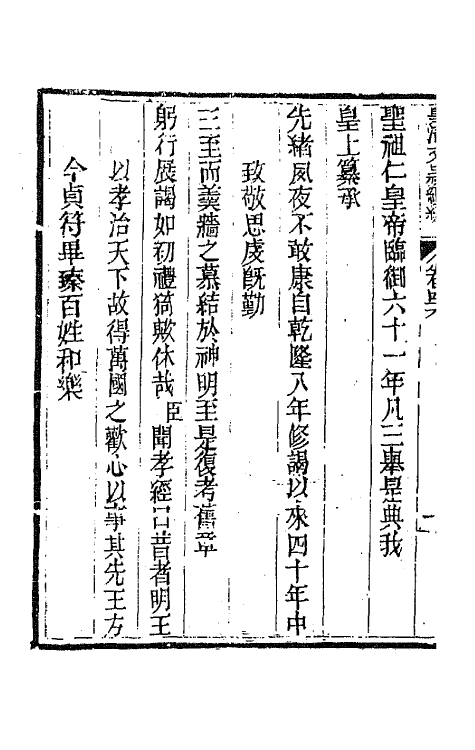 聖祖仁皇帝臨御六十一年凡三舉是典我
皇上纂承
先緒夙夜不敢康自乾隆八年修謁以來四十年中
致敬思虔旣勤
三至而羹牆之慕結於神明至是復考舊章
躬行展謁如初禮猗歟休哉臣聞孝經曰昔者明王
以孝治天下故得萬國之歡心以事其先王方
今貞符畢臻百姓和樂